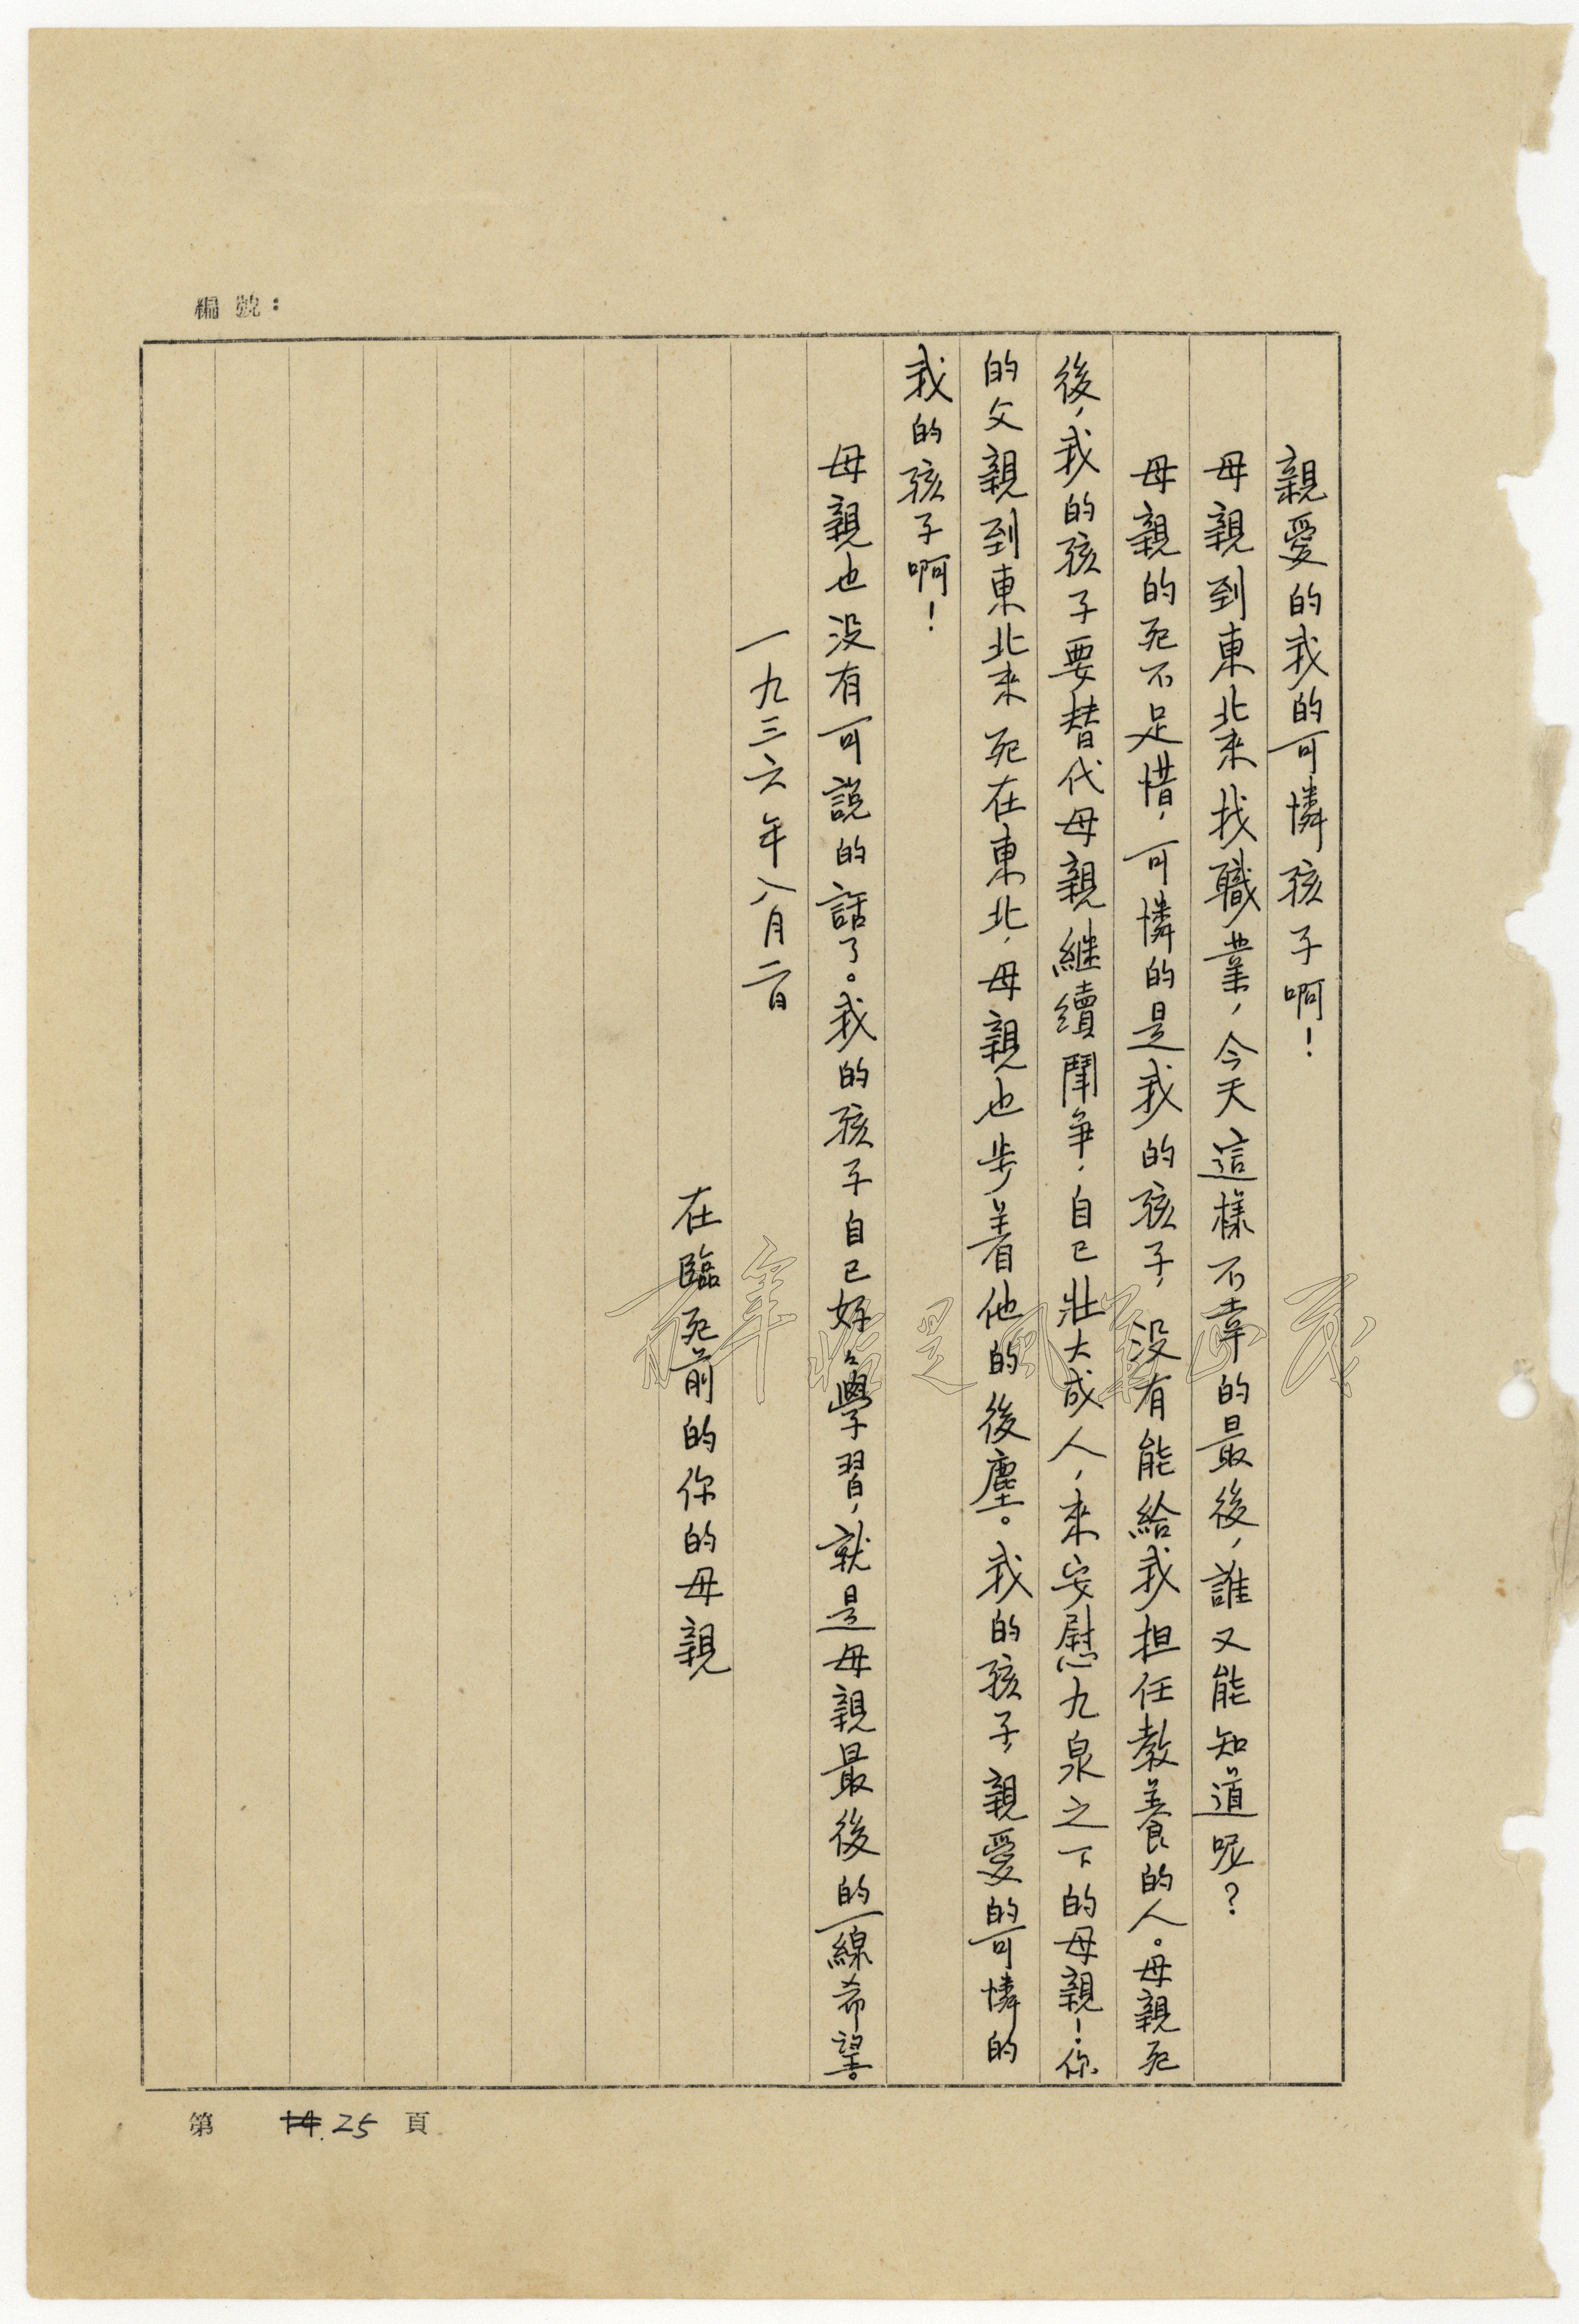 編號：
親愛的我的可憐孩子啊！
母親到東北來找職業，今天這樣不幸的最後，誰又能知道呢？
母親的死不足惜，可憐的是我的孩子，没有能給我担任教養的人。母親死
後，我的孩子要替代母親繼續鬥争，自己壯大成人，來安慰九泉之下的母親！你
的父親到東北來死在東北，母親也步着他的後塵。我的孩子，親愛的可憐的
我的孩子啊！
母親也没有可説的話了。我的孩子自己好々學習，就是母親最後的一線希望。
一九三六年八月二日
在臨死前的你的母親
第 14.25 頁